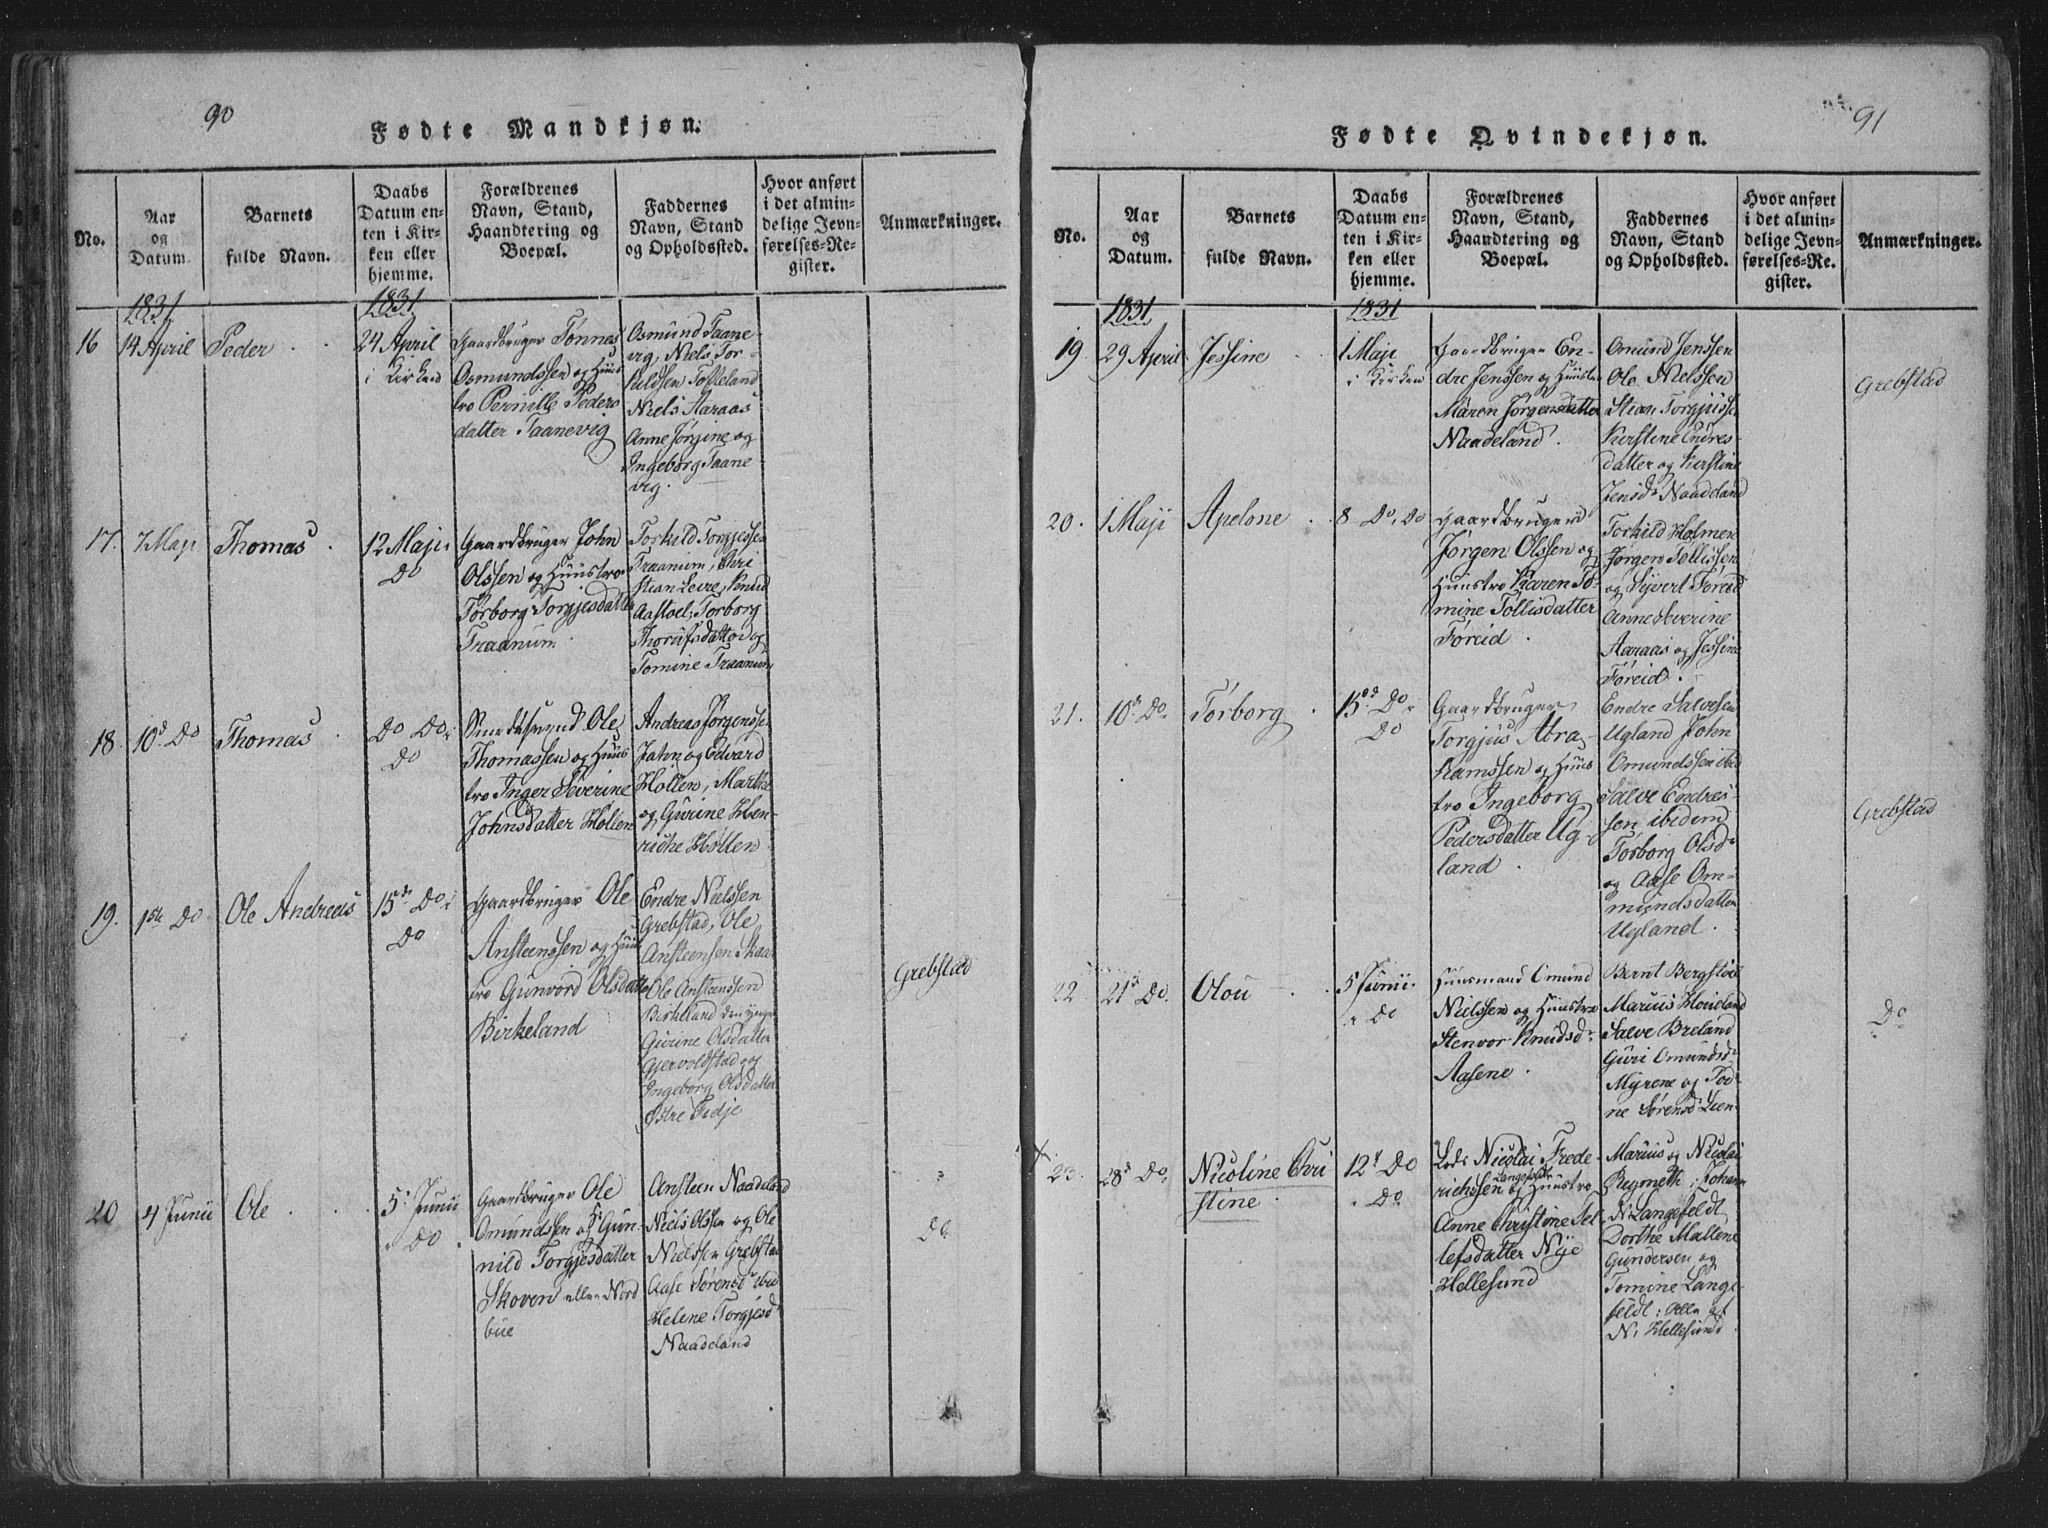 90
Fødte Mandkjøn.
No.
Aar
og
Datum.
Barnets
fulde Navn.
Daabs
Datum en-
ten i Kir-
ken eller
hjemme.
Forældrenes
Navn, Stand,
Haandtering og
Boepæl.
Faddernes
Navn, Stand
og Opholdssted.
Hvor anført
i det almin-
delige Jevn-
førelses-Re-
gister.
Anmærkninger.
1831
1831
16
14 April
Peder
24 April
i Kirken
Gaardbruger Tønnes
Osmundssen og Huus
tro Pernille Peders
datter Taanevig
Osmund Taane-
vig, Niels Tor-
kildsen Tofteland
Niels Aaraas
Anne Jørgine og
Ingeborg Taane-
vig.
17.
7 Maji
Thomas
12 Maji
Do
Gaardbruger John
Olssen og Huustro
Torborg Torgjesdatter
Traanum
Torkild Torgjessen
Traanum, Chri
stian Leire, Knud
Aastoel, Torborg
og
Tomine Traanum
18.
10d Do
Thomas
Do Do
Do
Ole
Thomassen og Huus
tro Inger Severine
Johnsdatter Høllen
Andreas Jørgenssen
Jahn og Edvard
Høllen, Marthe
og Gurine Hen-
riche Høllen
19.
Do
Ole Andreas
15d Do
Do
Gaardbruger Ole
Ansteenssen og Huus
tro Gunvord Olsdatter
Birkeland
Endre Nielssen
Grebstad, Ole
Ansteensen Skaar
Ole Ansteenssen
Birkeland den yngre
Gurine Olsdatter
Gjervoldstad og
Ingeborg Olsdatter
Østre Tedje
Grebstad
20
4 Junii
Ole
5 Junii
Do
Gaardbruger Ole
Omundssen og H. Gun-
nild Torgjesdatter
Skoven eller Nord
büe
Ansteen Naadeland
Niels Olssen og Ole
Nielssen Grebstad
Aase Sørensdr ibid
Helene Torgjesd
Naadeland
Do
91
Fødte Qvindekjøn.
No.
Aar
og
Datum.
Barnets
fulde Navn.
Daabs
Datum en-
ten i Kir-
ken eller
hjemme.
Forældrenes
Navn, Stand,
Haandtering og
Boepæl.
Faddernes
Navn, Stand
og Opholdsted.
Hvor anført
i det almin-
delige Jevn-
førelses-Re-
gister.
Anmærkninger.
1831
1831
19.
29 April
Jessine
1 Maji
i Kirken
Gaardbruger En-
dre Jenssen og Huustro
Maren Jørgensdatter
Naadeland.
Omund Jenssen
Ole Nielssen
Stian Torgjussen
Kirstine Endres-
datter og Kirstine
Jensdr Naadeland
Grebstad
20.
1 Maji
Apelone
8 Do, Do
Gaardbruger
Jørgen Olssen og
Huustro Karen To-
mine Tollisdatter
Føreid.
Torkild Holmen
Jørgen Tollissen
og Syvert Føreid
Anne Severine
Aaraas og Jessine
Føreid.
21.
10d Do
Torborg
15d Do
Do
Gaardbruger
Torgjus Abra-
hamssen og Huus
tro Ingeborg
Pedersdatter Ug-
land.
Endre Salvesen
Ugland John
Omundssen ibid
Salve Endres-
sen ibidem
Torborg Olsd
og Aase Om-
mundsdatter
Ugland.
Grebstad
22
21d Do
Olou
5 Junii
Do
Huusmand Omund
Nielssen og Huustro
Stenvor Knudsdr
Aasene.
Bernt Bergstøl
Marius Houeland
Salve Breland
Guri Omundsdr
Myrene og Tor-
ne Sørensd Lien
Do
X
23.
28d Do
Nicoline Chri
stine
12t Do
Do
Lods Nicolai Frede-
richssen Langefeldt og Huustro
Anne Christine Sel
lefsdatter Nye
Hellesund
Marius og Nicolai
Reymeth, Johan
N. Langefeldt
Dorthe Mallene
Gundersen og
Tomine Lange-
feldt: Alle af
N. Hellesund